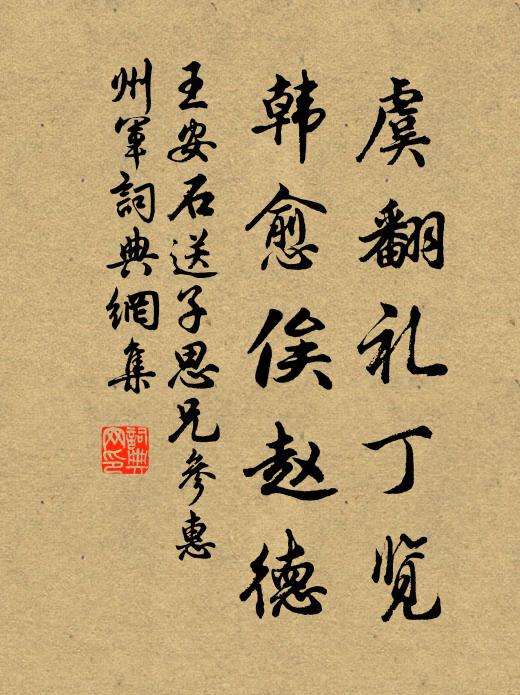 虞翻礼丁览
韩愈俟赵德
王安石送子思兄參惠
州軍詞典網集
詞典
网印